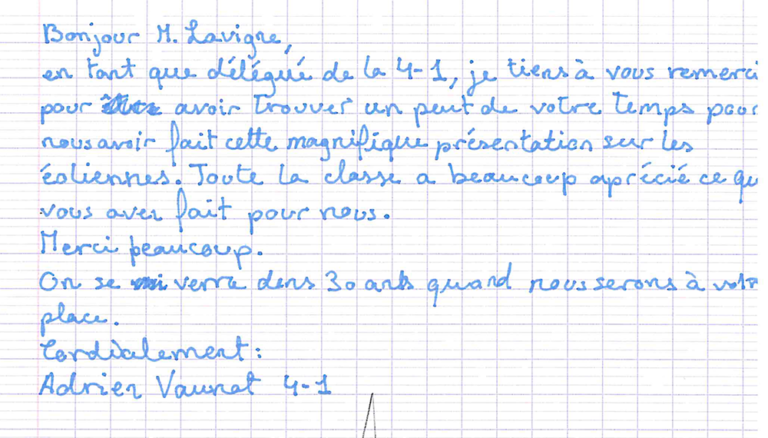 Bonjour M. Lavigne,
en tant que délégué de la 4-1, je tiens à vous remerci
pour avoir trouver un peut de votre temps pour
nous avoir fait cette magnifique présentation sur les
éoliennes. Toute la classe a beaucoup aprécié ce qu
vous aver fait pour nous.
Merci beaucoup.
On se verra dans 30 ans quand nous serons à votr
place.
Cordialement :
Adrien Vaunat 4-1